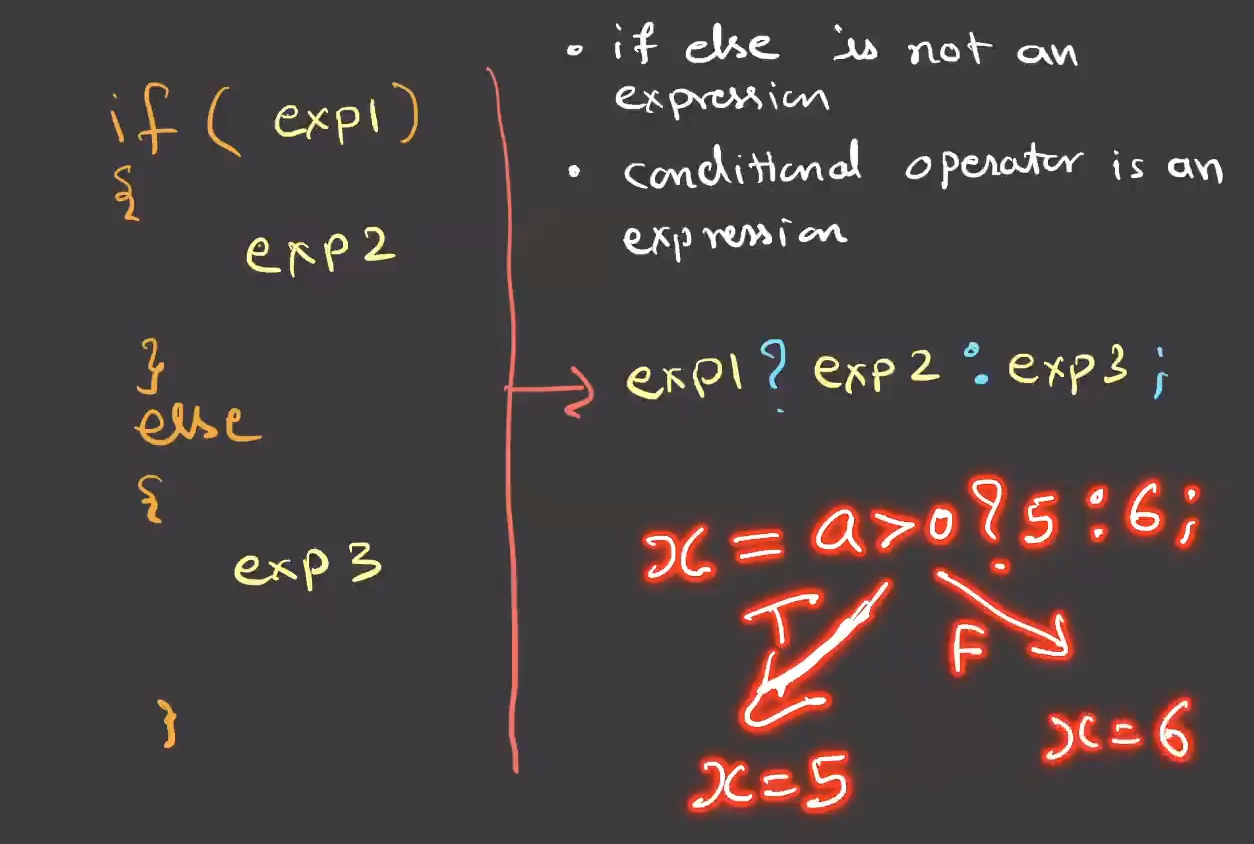 if ( exp1 )
{
exp2
}
else
{
exp3
}
• if else is not an
expression
• conditional operator is an
expression
exp1 ? exp2 : exp3 ;
x = a > 0 ? 5 : 6 ;
T
F
x = 5
x = 6